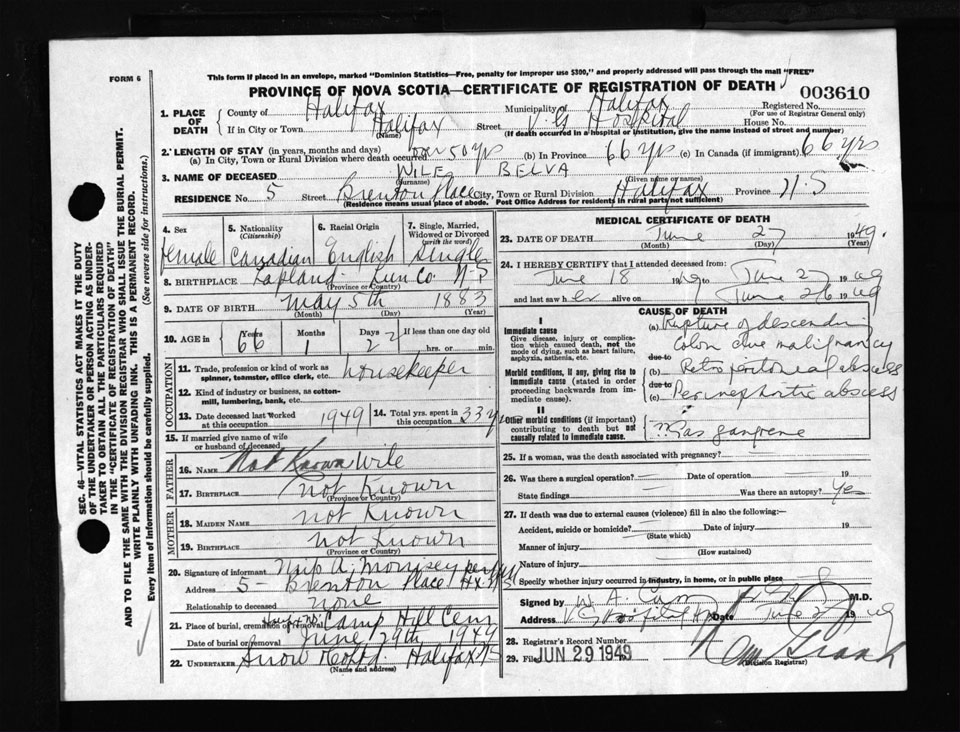 FORM 6
This form if placed in an envelope, marked "Dominion Statistics—Free, penalty for improper use $300," and properly addressed will pass through the mail "FREE"
PROVINCE OF NOVA SCOTIA—CERTIFICATE OF REGISTRATION OF DEATH
003610
1. PLACE OF DEATH
County of Halifax Municipality of Halifax Registered No.
(For use of Registrar General only)
If in City or Town Halifax Street V. G Hospital House No.
(Name) (If death occurred in a hospital or institution, give the name instead of street and number)
2. LENGTH OF STAY (in years, months and days)
(a) In City, Town or Rural Division where death occurred over 50 yrs (b) In Province 66 yrs (c) In Canada (if immigrant) 66 yrs
3. NAME OF DECEASED WILE BELVA
(Surname) (Given name or names)
RESIDENCE No. 5 Street Brenton Place City, Town or Rural Division Halifax Province N. S
(Residence means usual place of abode. Post Office Address for residents in rural parts not sufficient)
4. Sex 5. Nationality (Citizenship) 6. Racial Origin 7. Single, Married, Widowed or Divorced (write the word)
female Canadian English Single
8. BIRTHPLACE Lapland Lun Co. N-S
(Province or Country)
9. DATE OF BIRTH May 5th 1883
(Month) (Day) (Year)
10. AGE in Years Months Days If less than one day old
66 1 22 hrs. or min.
OCCUPATION
11. Trade, profession or kind of work as spinner, teamster, office clerk, etc. housekeeper
12. Kind of industry or business, as cotton-mill, lumbering, bank, etc.
13. Date deceased last worked at this occupation 1949 14. Total yrs. spent in 33 yrs
15. If married give name of wife or husband of deceased
FATHER
16. NAME Not Known Wile
17. BIRTHPLACE not Known
(Province or Country)
MOTHER
18. MAIDEN NAME not Known
19. BIRTHPLACE not Known
(Province or Country)
20. Signature of informant A. Morrisey
Address 5- Brenton Place Hx
Relationship to deceased none
21. Place of burial, cremation or removal Camp Hill Cem
Date of burial or removal June 29th 1949
22. UNDERTAKER Snow & Co Ltd. Halifax NS
(Name and address)
MEDICAL CERTIFICATE OF DEATH
23. DATE OF DEATH June 27 1949.
(Month) (Day) (Year)
24. I HEREBY CERTIFY that I attended deceased from:
June 18 1949 to June 27 1949
and last saw her alive on June 26 1949
CAUSE OF DEATH
I
Immediate cause
Give disease, injury or complication which caused death, not the mode of dying, such as heart failure, asphyxia, asthenia, etc.
(a) Rupture of descending
Colon due malignancy
due to
Morbid conditions, if any, giving rise to immediate cause (stated in order proceeding backwards from immediate cause).
(b) Retroperitoneal abscess
due to
(c) Perinephritic abscess
II
Other morbid conditions (if important) contributing to death but not causally related to immediate cause.
Gas gangrene
25. If a woman, was the death associated with pregnancy?
26. Was there a surgical operation? Date of operation 19
State findings Was there an autopsy? Yes
27. If death was due to external causes (violence) fill in also the following:—
Accident, suicide or homicide? Date of injury 19
(State which)
Manner of injury
(How sustained)
Nature of injury
Specify whether injury occurred in industry, in home, or in public place
Signed by W. A. M.D.
Address V. G. Hospital Date June 27 1949
28. Registrar's Record Number
29. Filed JUN 29 1949
(Division Registrar)
SEC. 46—VITAL STATISTICS ACT MAKES IT THE DUTY
OF THE UNDERTAKER OR PERSON ACTING AS UNDERTAKER TO OBTAIN ALL THE PARTICULARS REQUIRED
IN THE "CERTIFICATE OF REGISTRATION OF DEATH"
AND TO FILE THE SAME WITH THE DIVISION REGISTRAR WHO SHALL ISSUE THE BURIAL PERMIT.
WRITE PLAINLY WITH UNFADING INK. THIS IS A PERMANENT RECORD.
Every item of information should be carefully supplied. (See reverse side for instructions.)